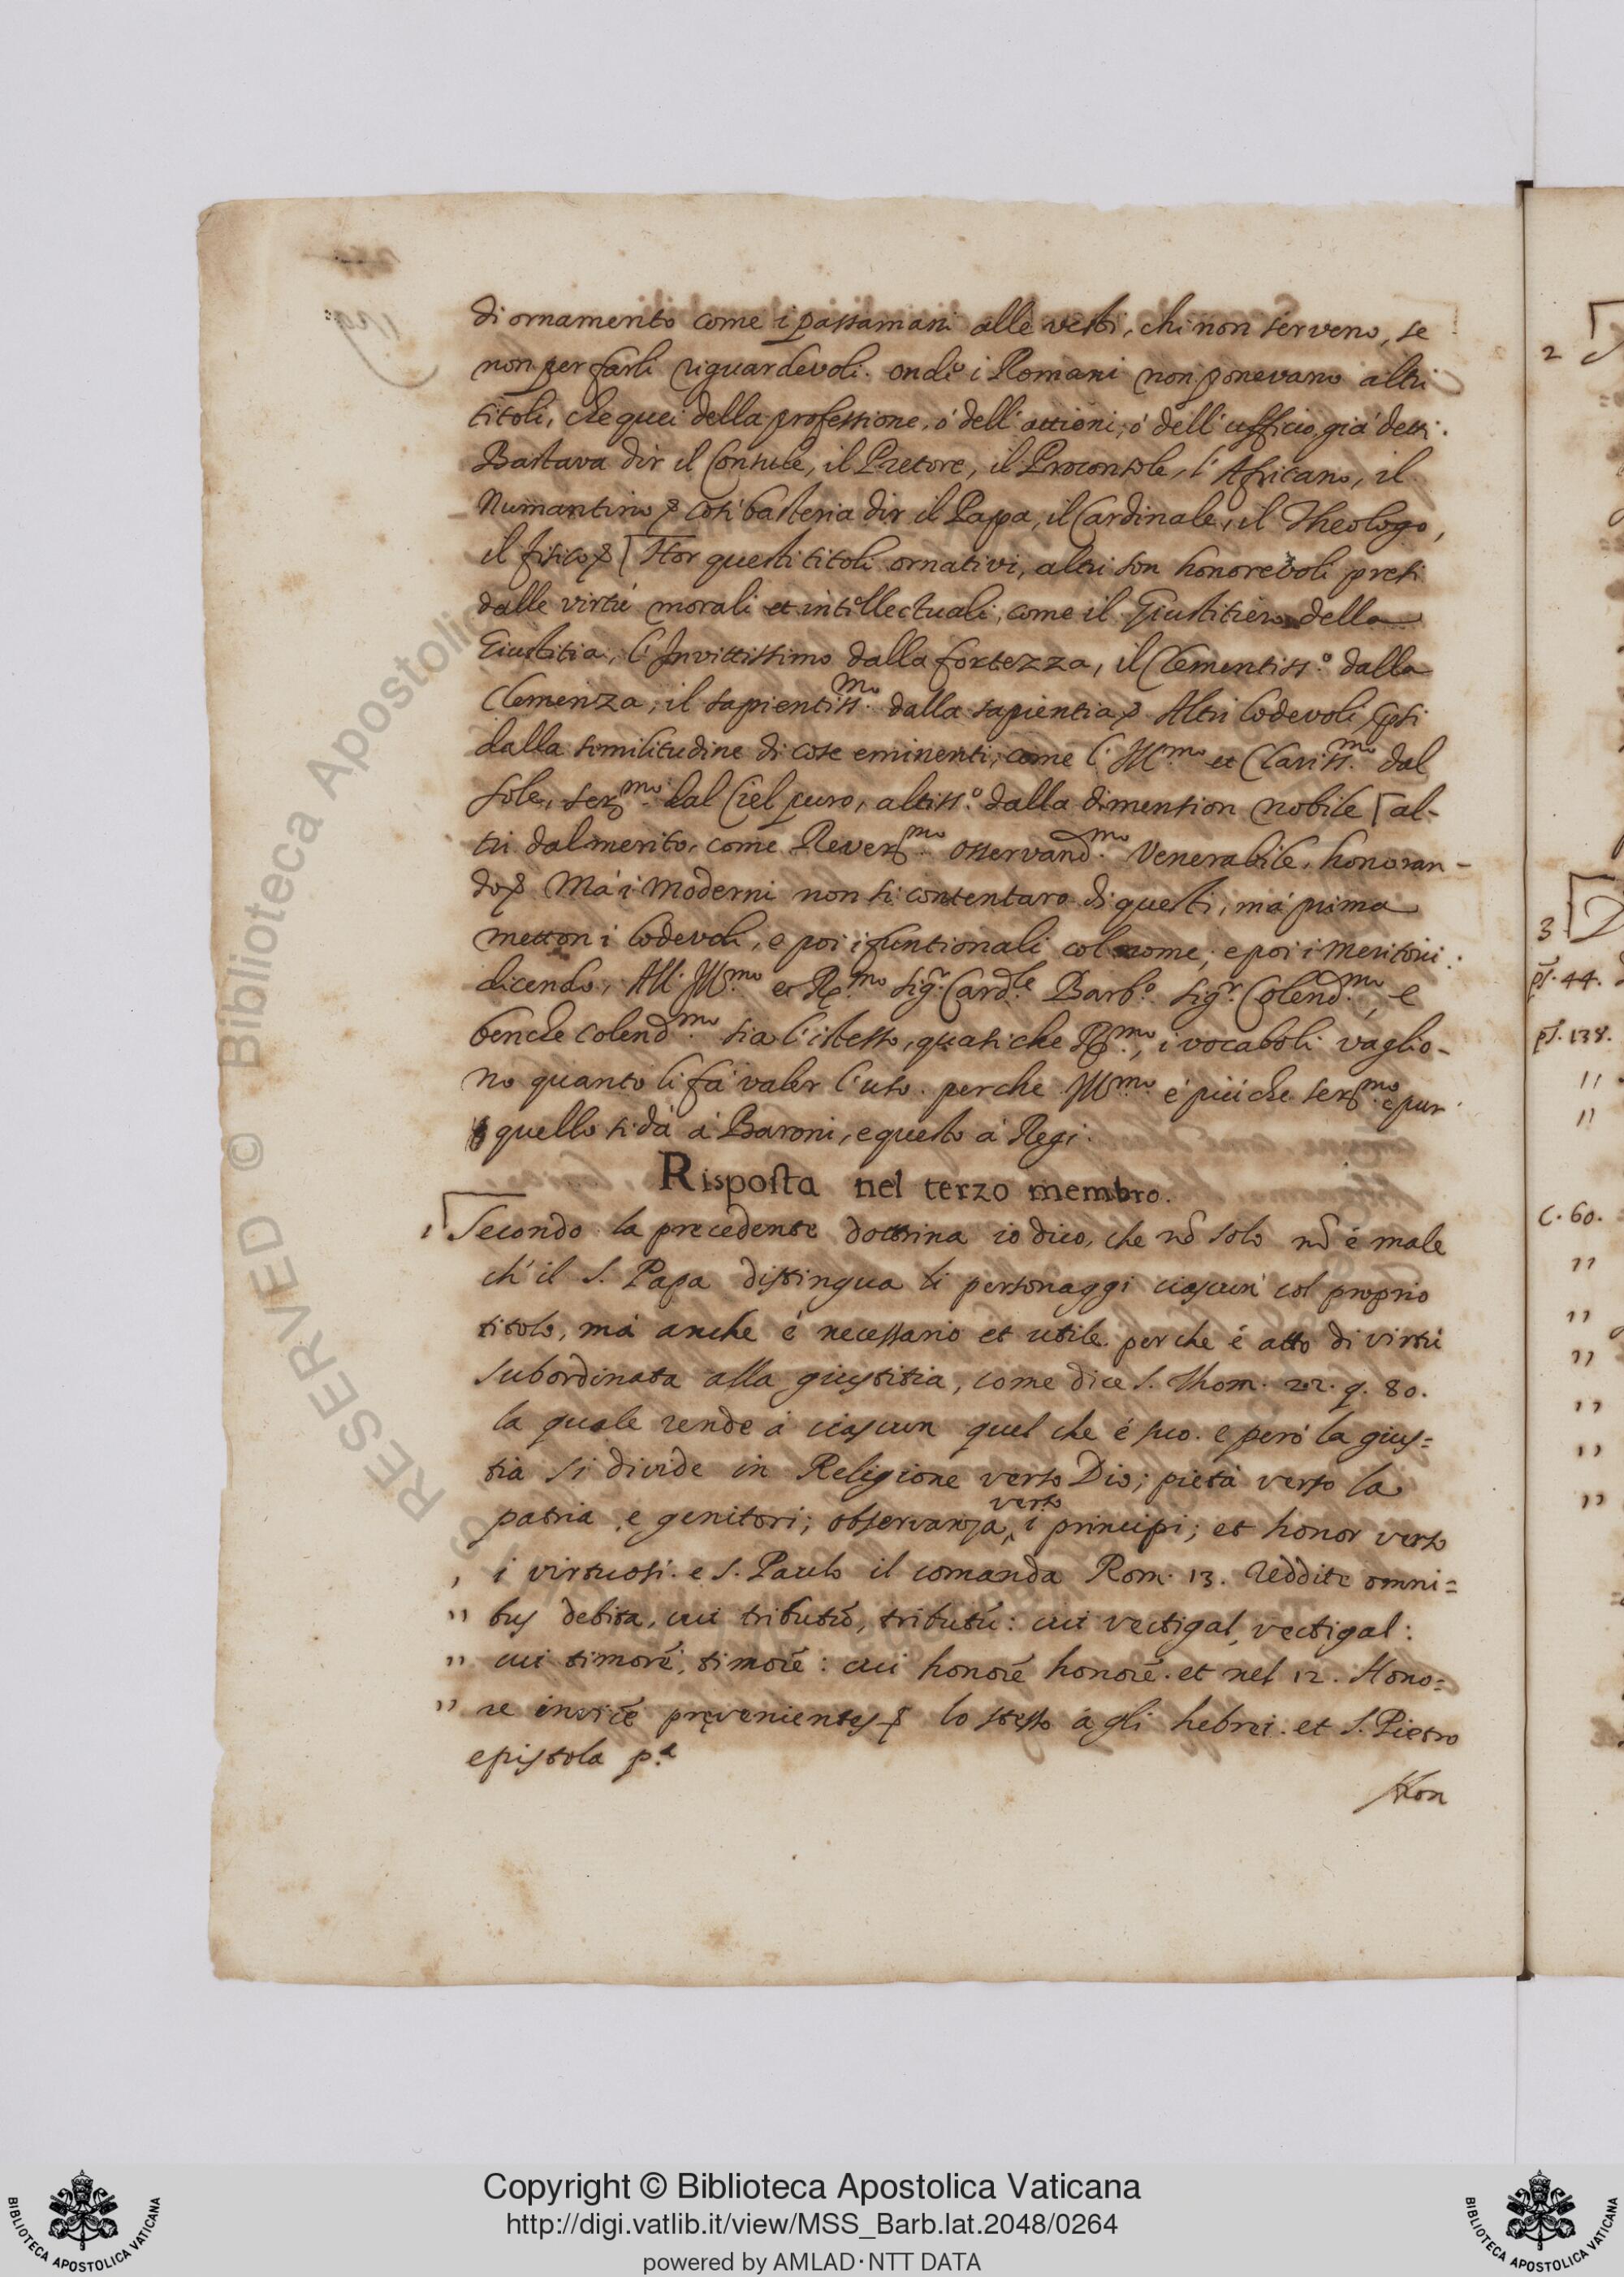 di ornamento come i passamani alle vesti, chi non serveno, se
non per farli riguardevoli. onde i Romani non ponevano altri
titoli, che quei della professione, ó dell' attioni, ó dell' ufficio, giá detti.
Bastava dir il Consule, il Pretore, il Proconsole, l' Africano, il
Numantino & cosí basteria dir il Papa, il Cardinale, il Theologo,
il fisico & Hor questi titoli ornativi, altri son honorevoli presi
dalle virtú morali et intellectuali, come il Giustitiero della
Giustitia, l' Invittissimo dalla fortezza, il Clementiss.º dalla
Clemenza, il sapientiss.mo dalla sapientia & Altri lodevoli, psi
dalla similitudine di cose eminenti, come l' Ill.mo et Clariss.mo dal
sole, ser.mo dal Ciel puro, altiss.º dalla dimension nobile al-
tri dal merito, come Rever.mo osservand.mo Venerabile, honoran-
do & Má i moderni non si contentaro di questi, má prima
metton i lodevoli, e poi i funtionali col nome, e poi i meritorii.
dicendo, All' Ill.mo et R.mo Sig.r Card.le Barb.º Sig.r Colend.mo, e
benche colend.mo sia l' istesso, quasi che R.mo, i vocaboli vaglio-
no quanto li fá valer l' uso. perche Ill.mo é piú che ser.mo e pur
quello si dá á Baroni, e questo á Regi.
Risposta nel terzo membro.
1 Secondo la precedente dottrina io dico, che nõ solo nõ é male
ch' il S. Papa distingua li personaggi ciascun col proprio
titolo, má anche é necessario et utile. perche é atto di virtú
subordinata alla giustitia, come dice S. Thom. 22. q. 80.
la quale rende á ciascun quel che é suo. e peró la gius=
tia si divide in Religione verso Dio; pietá verso la
patria e genitori; observanza, verso i principi; et honor verso
, i virtuosi. e S. Paulo il comanda Rom. 13. Reddite omni=
" bus debita, cui tributũ, tributũ: cui vectigal, vectigal:
" cui timorẽ, timorẽ: cui honorẽ honorẽ. et nel 12. Hono=
" re invicẽ pręvenientes & lo stesso á gli hebrei. et S. Pietro
epistola p.a
Hon
2
3
ps. 44.
ps. 138.
"
"
c. 60.
"
"
"
"
"
"
RESERVED © Biblioteca Apostolic
Copyright © Biblioteca Apostolica Vaticana
http://digi.vatlib.it/view/MSS_Barb.lat.2048/0264
powered by AMLAD·NTT DATA
BIBLIOTECA APOSTOLICA VATICANA
BIBLIOTECA APOSTOLICA VATICANA